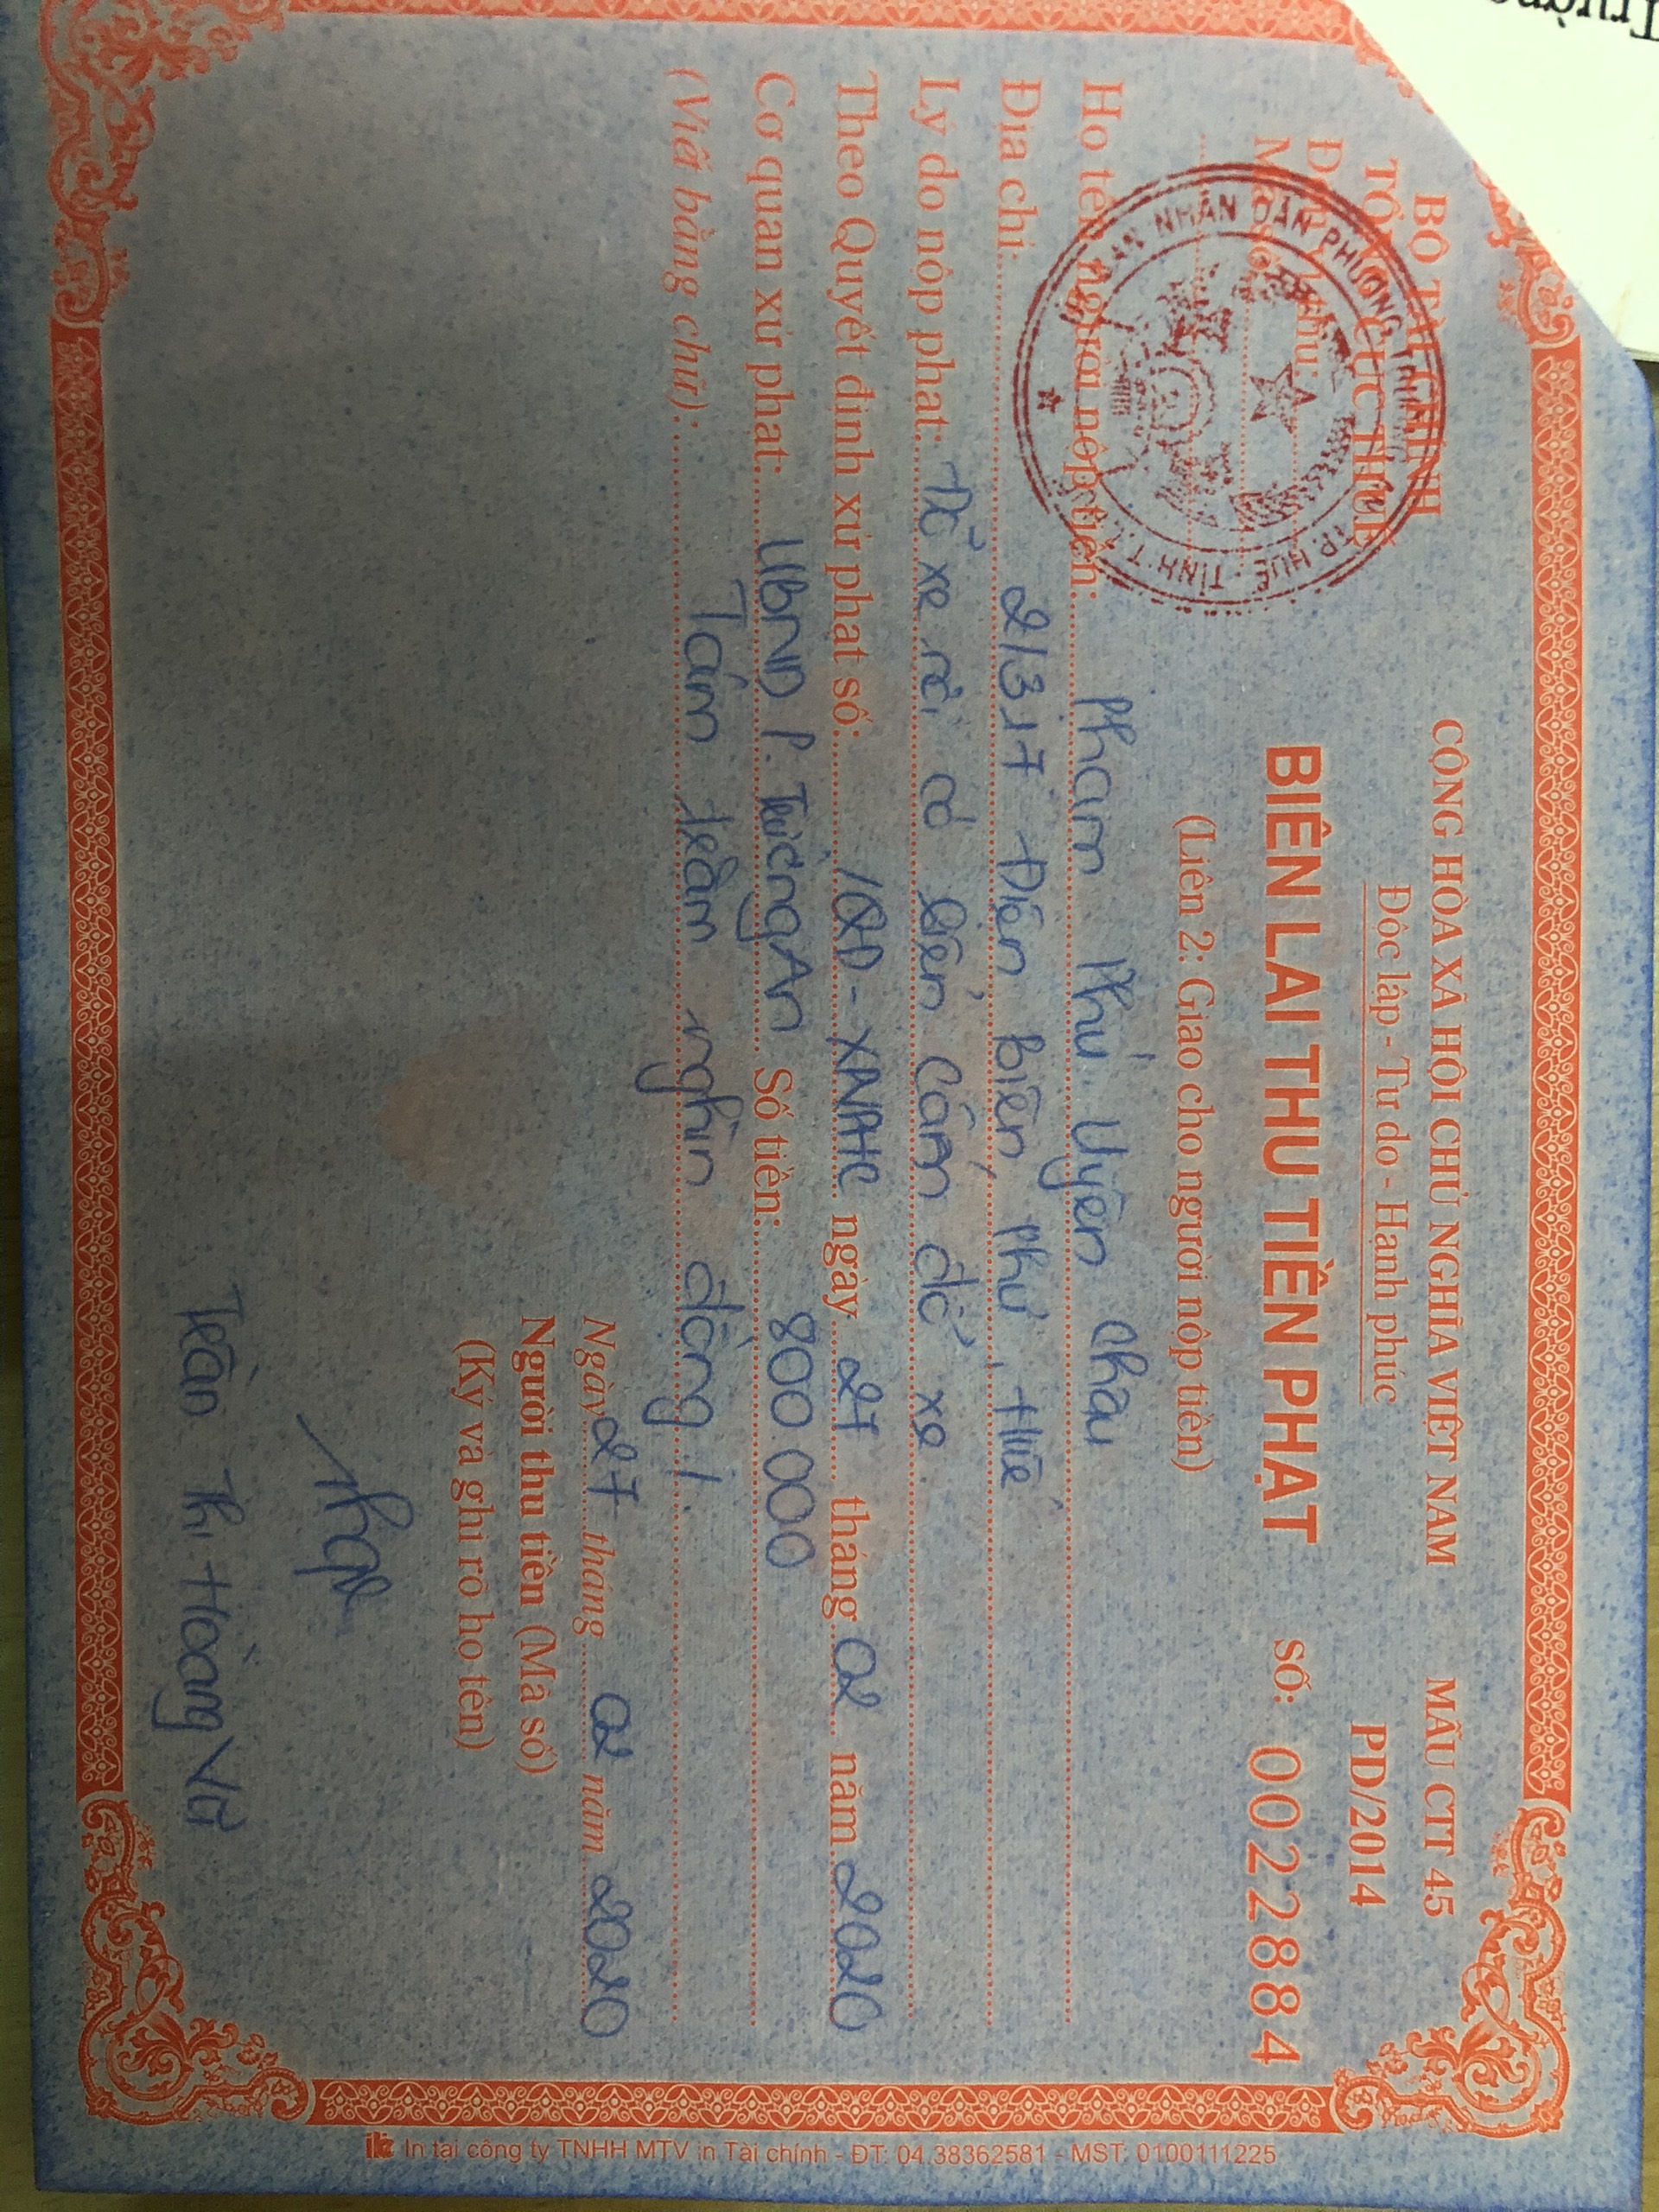 BỘ TÀI CHÍNH
TỔNG CỤC THUẾ
CỘNG HÒA XÃ HỘI CHỦ NGHĨA VIỆT NAM
Độc lập - Tự do - Hạnh phúc
MẪU CTT 45
PD/2014
BIÊN LAI THU TIỀN PHẠT
SỐ: 0022884
(Liên 2: Giao cho người nộp tiền)
ỦY BAN NHÂN DÂN PHƯỜNG TP. HUẾ - TỈNH T.T
Họ tên người nộp tiền: Phạm Phú Uyên Châu
Địa chỉ: 2/317 Điện Biên Phủ, Huế
Lý do nộp phạt: Đỗ xe nơi có biển cấm đỗ xe
Theo Quyết định xử phạt số: /QĐ-XPVPHC ngày 27 tháng 02 năm 2020
Cơ quan xử phạt: UBND P. Trường An Số tiền: 800 000
(Viết bằng chữ): Tám trăm nghìn đồng /.
Ngày 27 tháng 02 năm 2020
Người thu tiền (Mã số)
(Ký và ghi rõ họ tên)
Trần Thị Hoàng
In tại công ty TNHH MTV in Tài chính - ĐT: 04.38362581 - MST: 0100111225